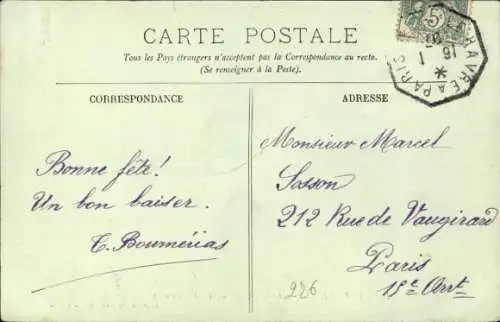 CARTE POSTALE
Tous les Pays étrangers n'acceptent pas la Correspondance au recto.
(Se renseigner à la Poste).
CORRESPONDANCE
ADRESSE
Bonne fête!
Un bon baiser.
C. Boumérias
Monsieur Marcel
Sosson
212 Rue de Vaugirard
Paris
15e Arrt
226
HAVRE A PARIS
1
16
5c